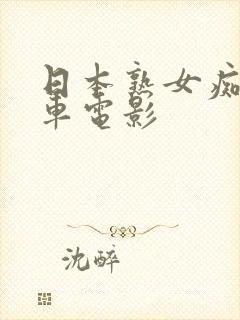 日本熟女痴
車電影
沈醉